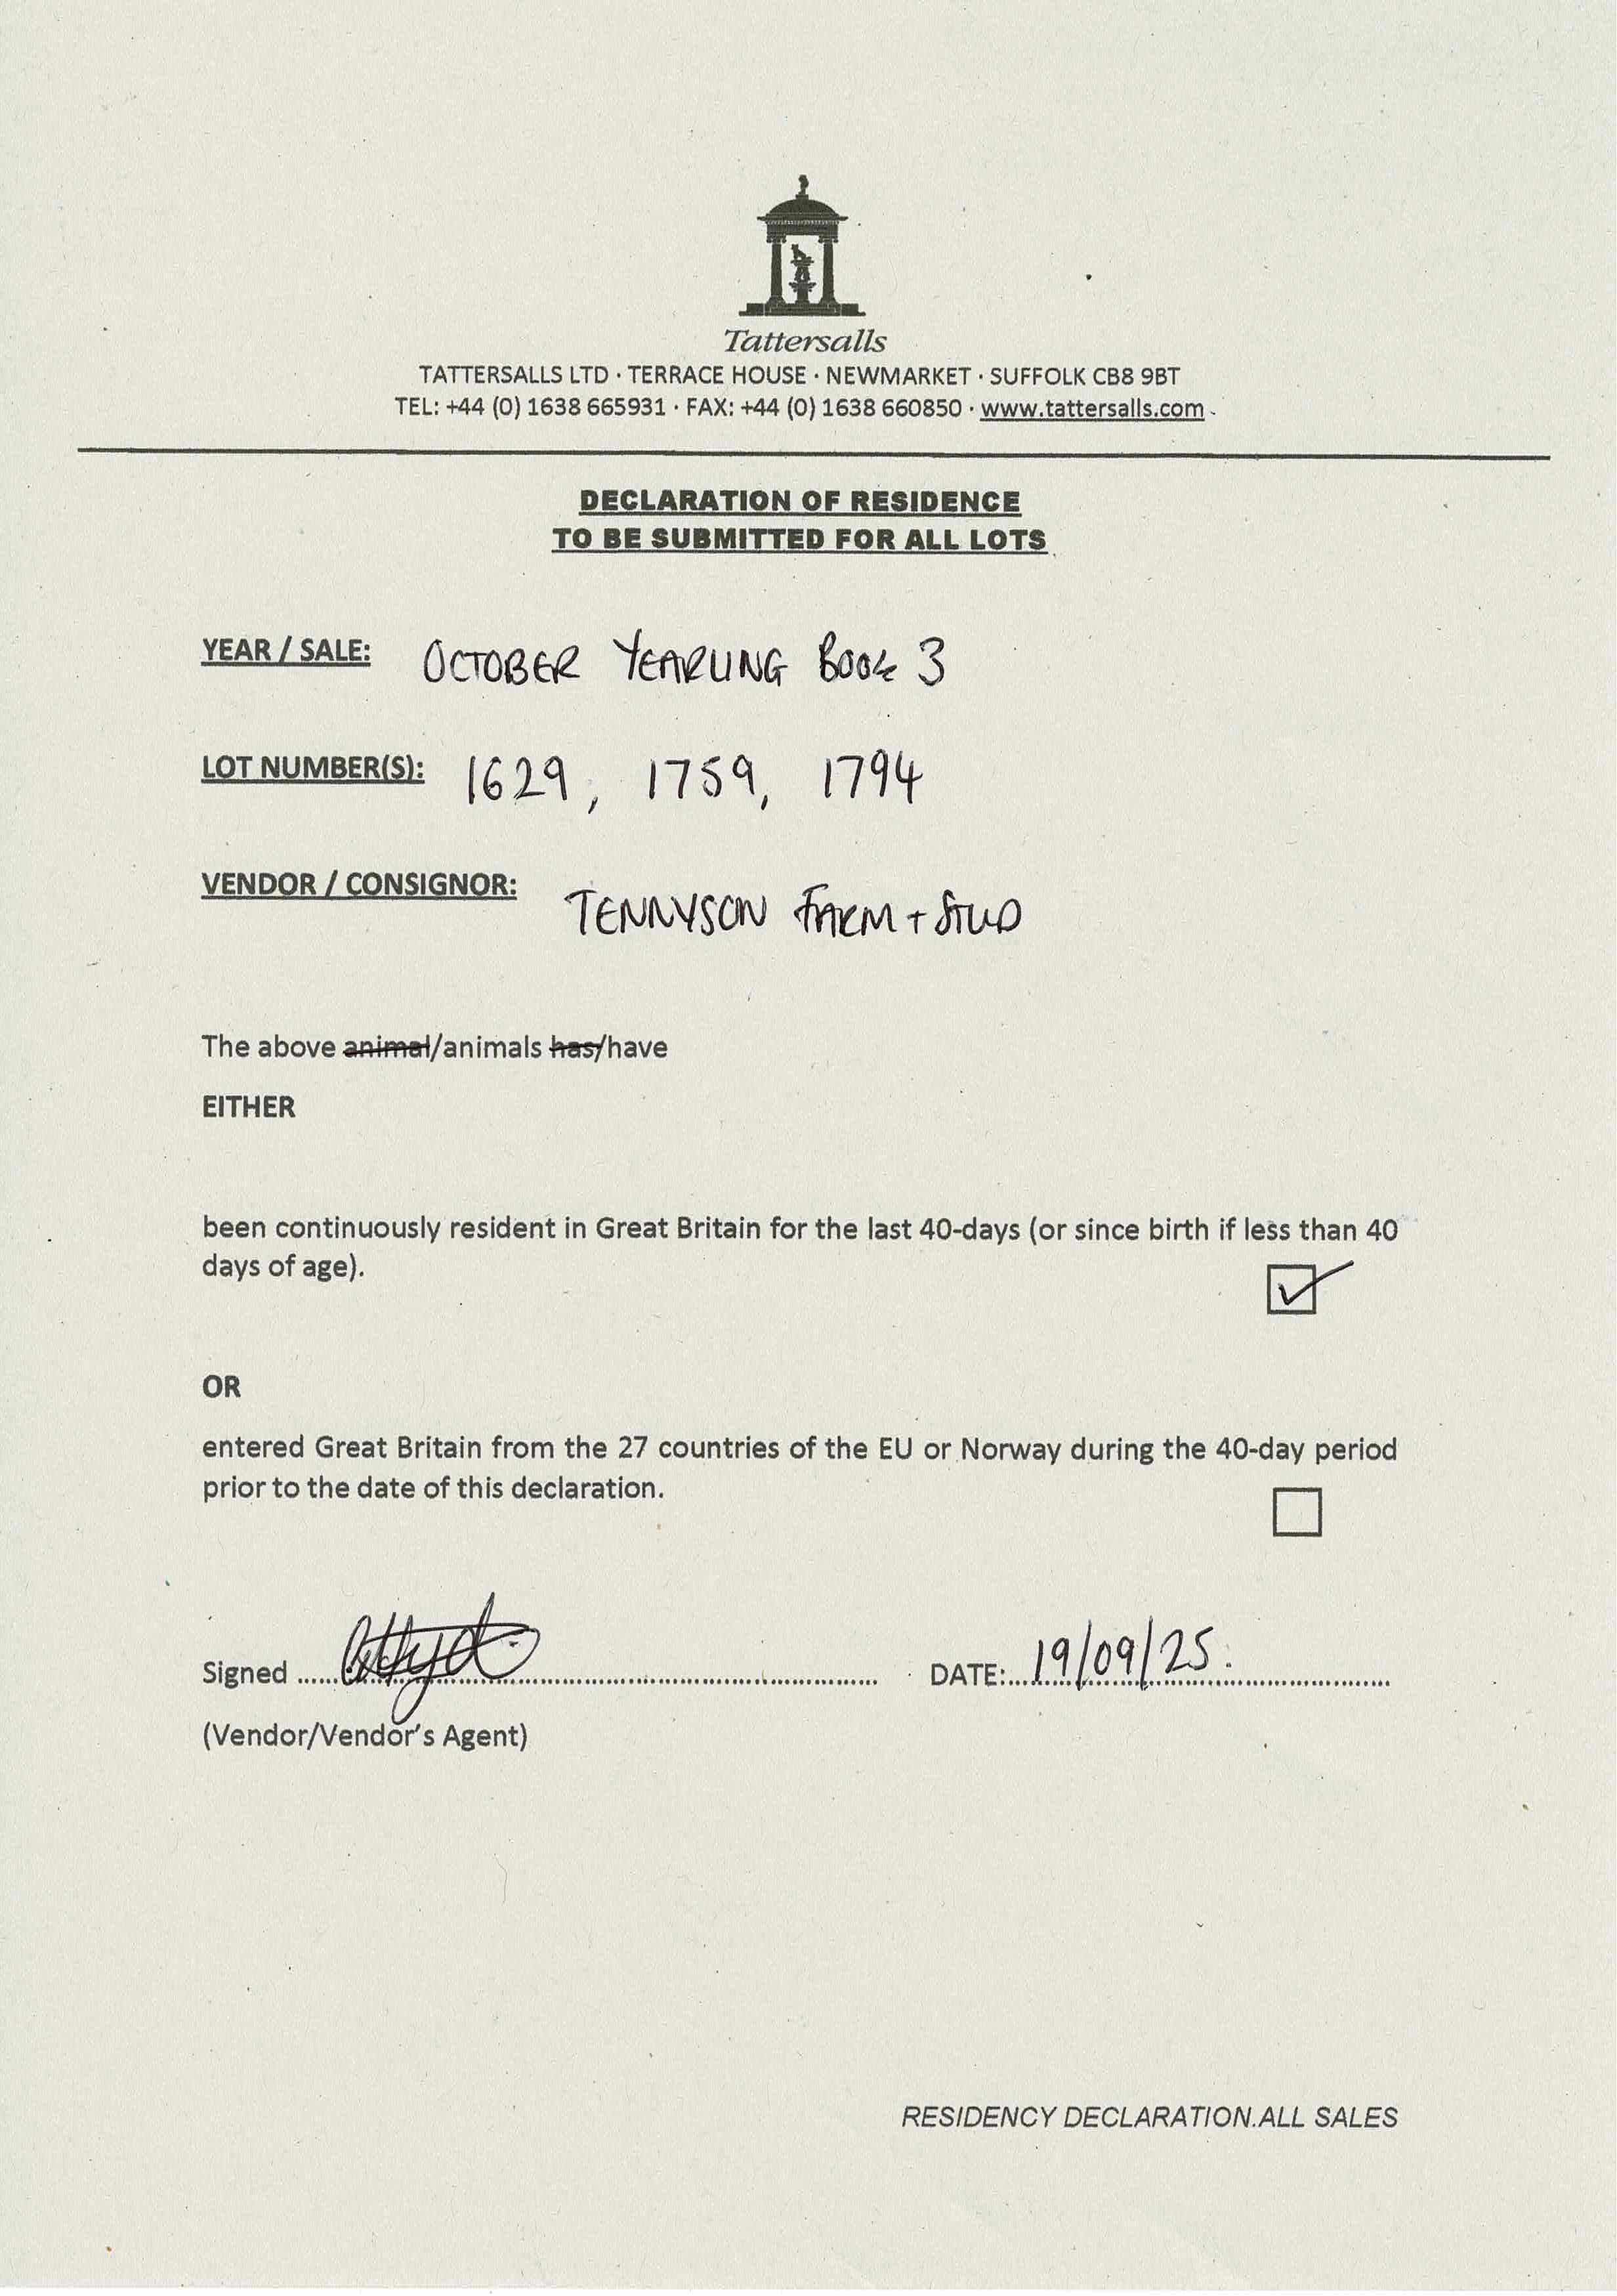 Tattersalls
TATTERSALLS LTD · TERRACE HOUSE · NEWMARKET · SUFFOLK CB8 9BT
TEL: +44 (0) 1638 665931 · FAX: +44 (0) 1638 660850 · www.tattersalls.com
DECLARATION OF RESIDENCE
TO BE SUBMITTED FOR ALL LOTS
YEAR / SALE: OCTOBER YEARLING BOOK 3
LOT NUMBER(S): 1629, 1759, 1794
VENDOR / CONSIGNOR: TENNYSON FARM + STUD
The above animal/animals has/have
EITHER
been continuously resident in Great Britain for the last 40-days (or since birth if less than 40
days of age).
OR
entered Great Britain from the 27 countries of the EU or Norway during the 40-day period
prior to the date of this declaration.
Signed DATE: 19/09/25.
(Vendor/Vendor's Agent)
RESIDENCY DECLARATION.ALL SALES